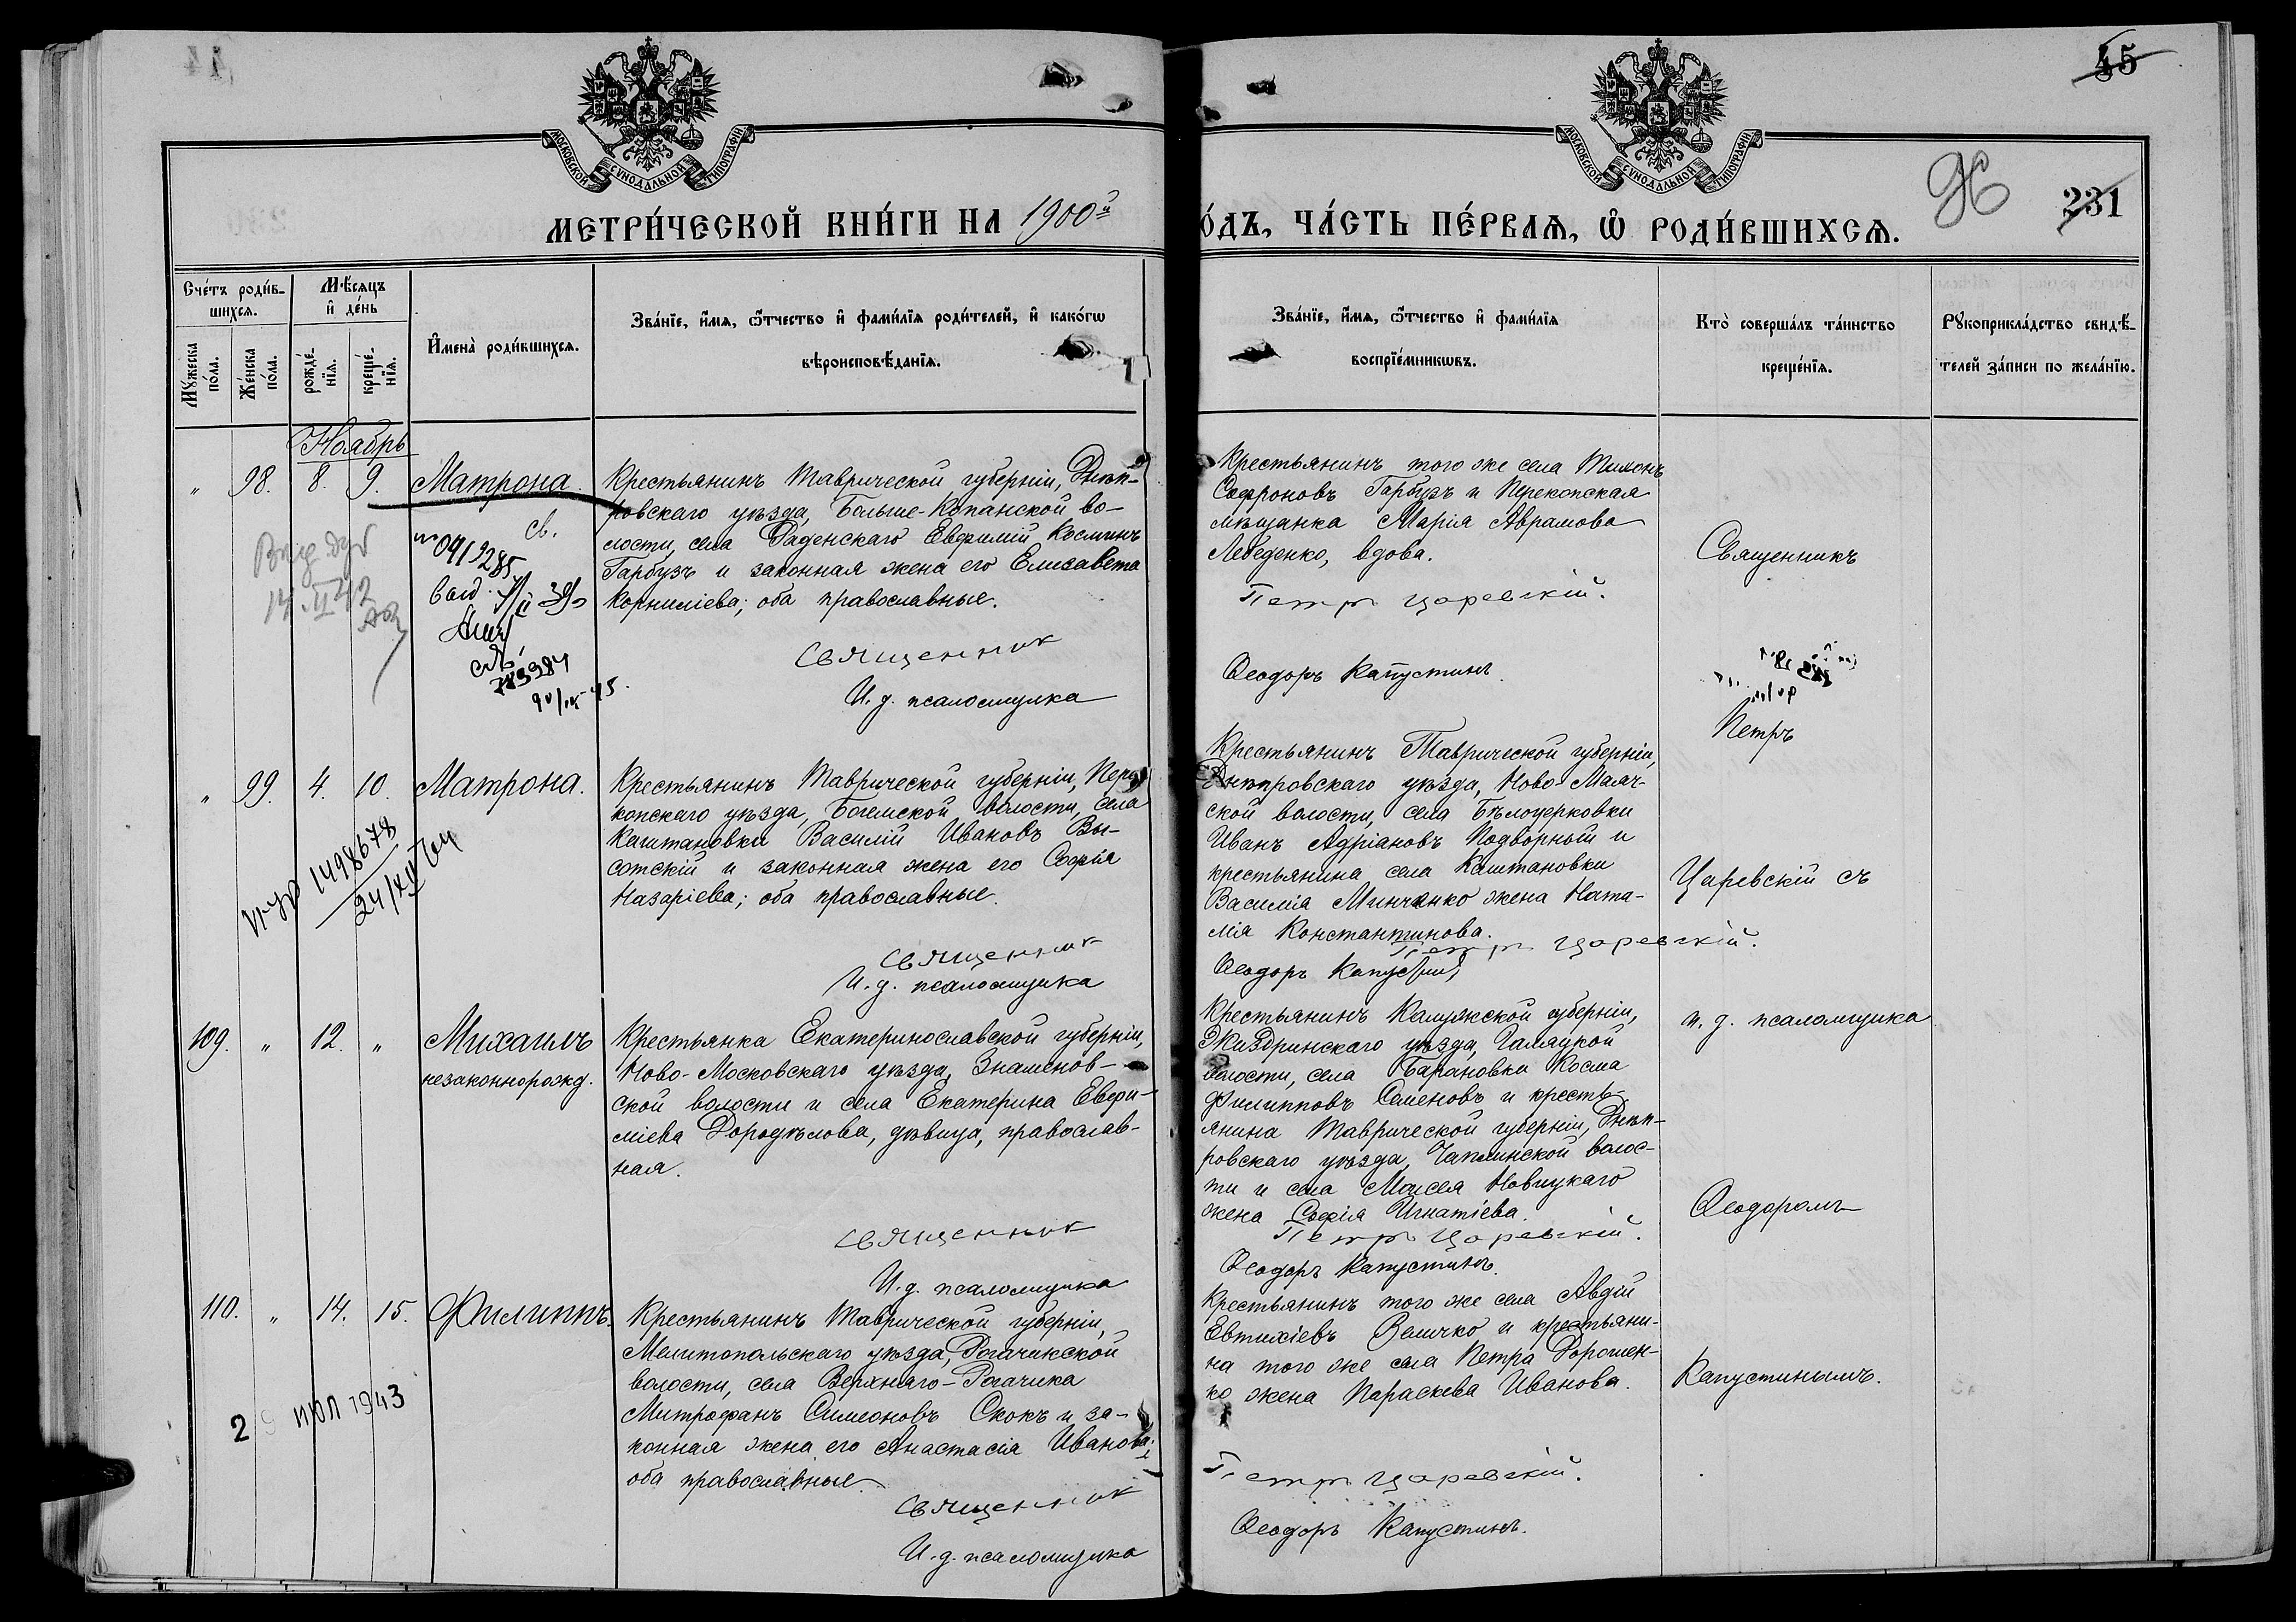 45
МОСКОВСКОЙ СѴНОДАЛЬНОЙ ТИПОГРАФІИ
МОСКОВСКОЙ СѴНОДАЛЬНОЙ ТИПОГРАФІИ
МЕТРИ́ЧЕСКОЙ КНИ́ГИ НА 1900й
О́ДЪ, ЧА́СТЬ ПЕ́РВАѦ, Ѡ҆ РОДИ́ВШИХСѦ.
231
Счéтъ роди́в-
шихсѧ.
Мꙋ́жеска
пóла.
Жéнска
пóла.
Мѣ́сѧцъ
и҆ дéнь
рождé-
нїѧ.
крещé-
нїѧ.
И҆менà роди́вшихсѧ.
Звáнїе, и҆́мѧ, ѻ҆́тчество и҆ фами́лїѧ роди́телей, и҆ какóгѡ
вѣроисповѣ́данїѧ.
Звáнїе, и҆́мѧ, ѻ҆́тчество и҆ фами́лїѧ
воспрїéмникѡвъ.
Ктò совершáлъ тáинство
крещéнїѧ.
Рꙋкоприклáдство свидѣ́-
телей зáписи по желáнїю.
Ноябрь
" 98. 8. 9. Матрона.
Крестьянинъ Таврической губерніи, Днѣп-
ровскаго уѣзда, Больше-Копанской во-
лости, села Раденскаго Евфимій Косминъ
Гарбузъ и законная жена его Елисавета
Корниліева; оба православные.
Священник
И. д. псаломщика
св.
0919285
выд.
14. II 42
783984
Крестьянинъ того же села Тихонъ
Софроновъ Гарбузъ и Перекопская
мѣщанка Марія Аврамова
Лебеденко, вдова.
Петр Царевскій.
Ѳеодоръ Капустинъ.
Священникъ
Петръ
" 99. 4. 10. Матрона.
Крестьянинъ Таврической губерніи, Пере
копскаго уѣзда, Богемской волости, села
Каштановки Василій Ивановъ Вы-
сотскій и законная жена его Софія
Назаріева; оба православные.
Священник
И. д. псаломщика
1498678
24/XII
Крестьянинъ Таврической губерніи,
Днѣпровскаго уѣзда, Ново-Маяч-
ской волости, села Бѣлоцерковки
Иванъ Адріановъ Подворный и
крестьянина села Каштановки
Василія Минченко жена Ната-
лія Константинова.
Петр Царевскій.
Ѳеодоръ Капустинъ
Царевскій съ
109. " 12. " Михаилъ
незаконнорожд.
Крестьянка Екатеринославской губерніи,
Ново-Московскаго уѣзда, Знаменов-
ской волости и села Екатерина Евфи-
міева Дородѣлова, дѣвица, православ-
ная.
Священник
И. д. псаломщика
Крестьянинъ Калужской губерніи,
Жиздринскаго уѣзда,
волости, села Барановки Косма
Филипповъ Семеновъ и кресть-
янина Таврической губерніи, Днѣп-
ровскаго уѣзда, Чаплинской волос-
ти и села Моисея Новицкаго
жена Софія Игнатіева.
Петр Царевскій.
Ѳеодоръ Капустинъ.
и. д. псаломщика
Ѳеодоромъ
110. " 14. 15. Филиппъ.
Крестьянинъ Таврической губерніи,
Мелитопольскаго уѣзда, Рогачикской
волости, села Верхняго-Рогачика
Митрофанъ Симеоновъ Скокъ и за-
конная жена его Анастасія Иванова;
оба православные.
Священник
И. д. псаломщика
29 ИЮЛ 1943
Крестьянинъ того же села Авдій
Евтихіевъ Величко и крестьяни-
на того же села Петра Дорошен-
ко жена Параскева Иванова.
Петр Царевскій.
Ѳеодоръ Капустинъ.
Капустинымъ.